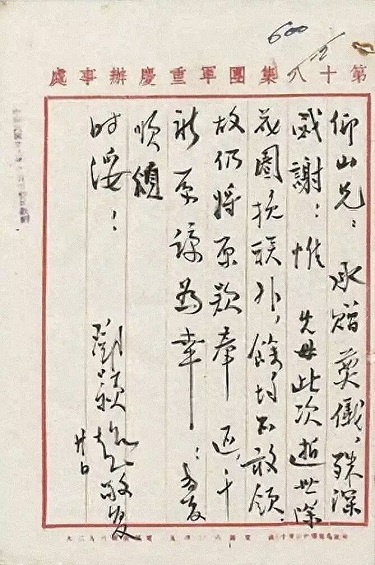 600
第十八集團軍重慶辦事處
仰山兄：承贈奠儀，殊深
感謝；惟 先母此次逝世，除
花圈挽联外，餘均不敢領，
故仍將原款奉返，千
祈原諒為幸！耑复
順頌
时绥！
鄧颖超敬复
廿日